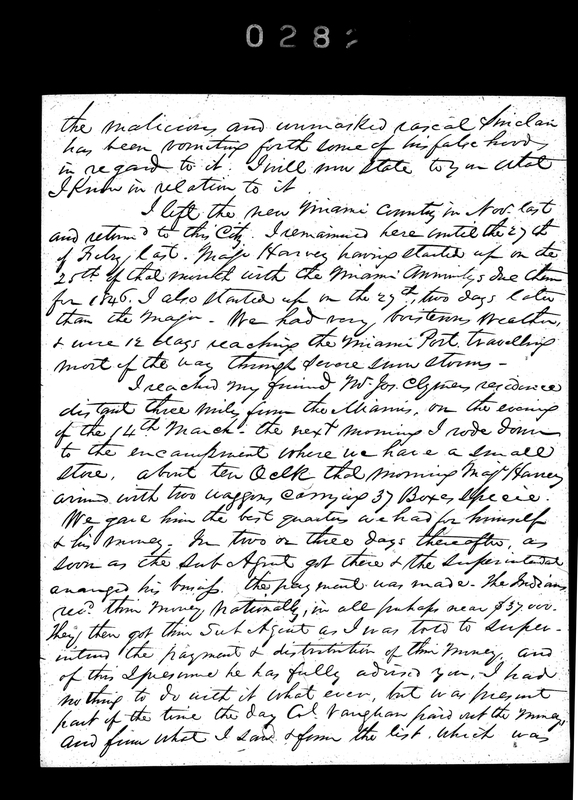 028
the malicious and unmasked rascal Sinclair
has been vomiting forth some of his false hoods
in regard to it. I will now state to you what
I know in relation to it
I left the new Miami Country in Nov. last
and returnd to this City. I remained here until the 27th
of Feby last. Majr Harvey having started up on the
25th of that month with the Miami Annuitys due them
for 1846. I also started up on the 27th, two days later
than the Major - We had very boisterous weather,
& were 12 days reaching the Miami Post, travelling
most of the way through severe snow storms -
I reached my friend Mr Jos. Clymers residence
distant three miles from the Miamis, on the evening
of the 14th March. the next morning I rode down
to the encampment where we have a small
store, about ten Oclk that morning Majr Harvey
arived with two waggons carrying 37 Boxes specie.
We gave him the best quarters we had for himself
& his money. In two or three days thereafter, as
soon as the Sub Agent got there & the Superintendent
arranged his busnss. the payment was made. The Indians
recd. their Money Nationally, in all perhaps near $37.000.
They then got their Sub Agent, as I was told to super-
intend the payment & distribution of their money, and
of this I presume he has fully advised you, I had
nothing to do with it what ever, but was present
part of the time the day Col Vaughan paid out the money
and from what I saw & from the list, which was